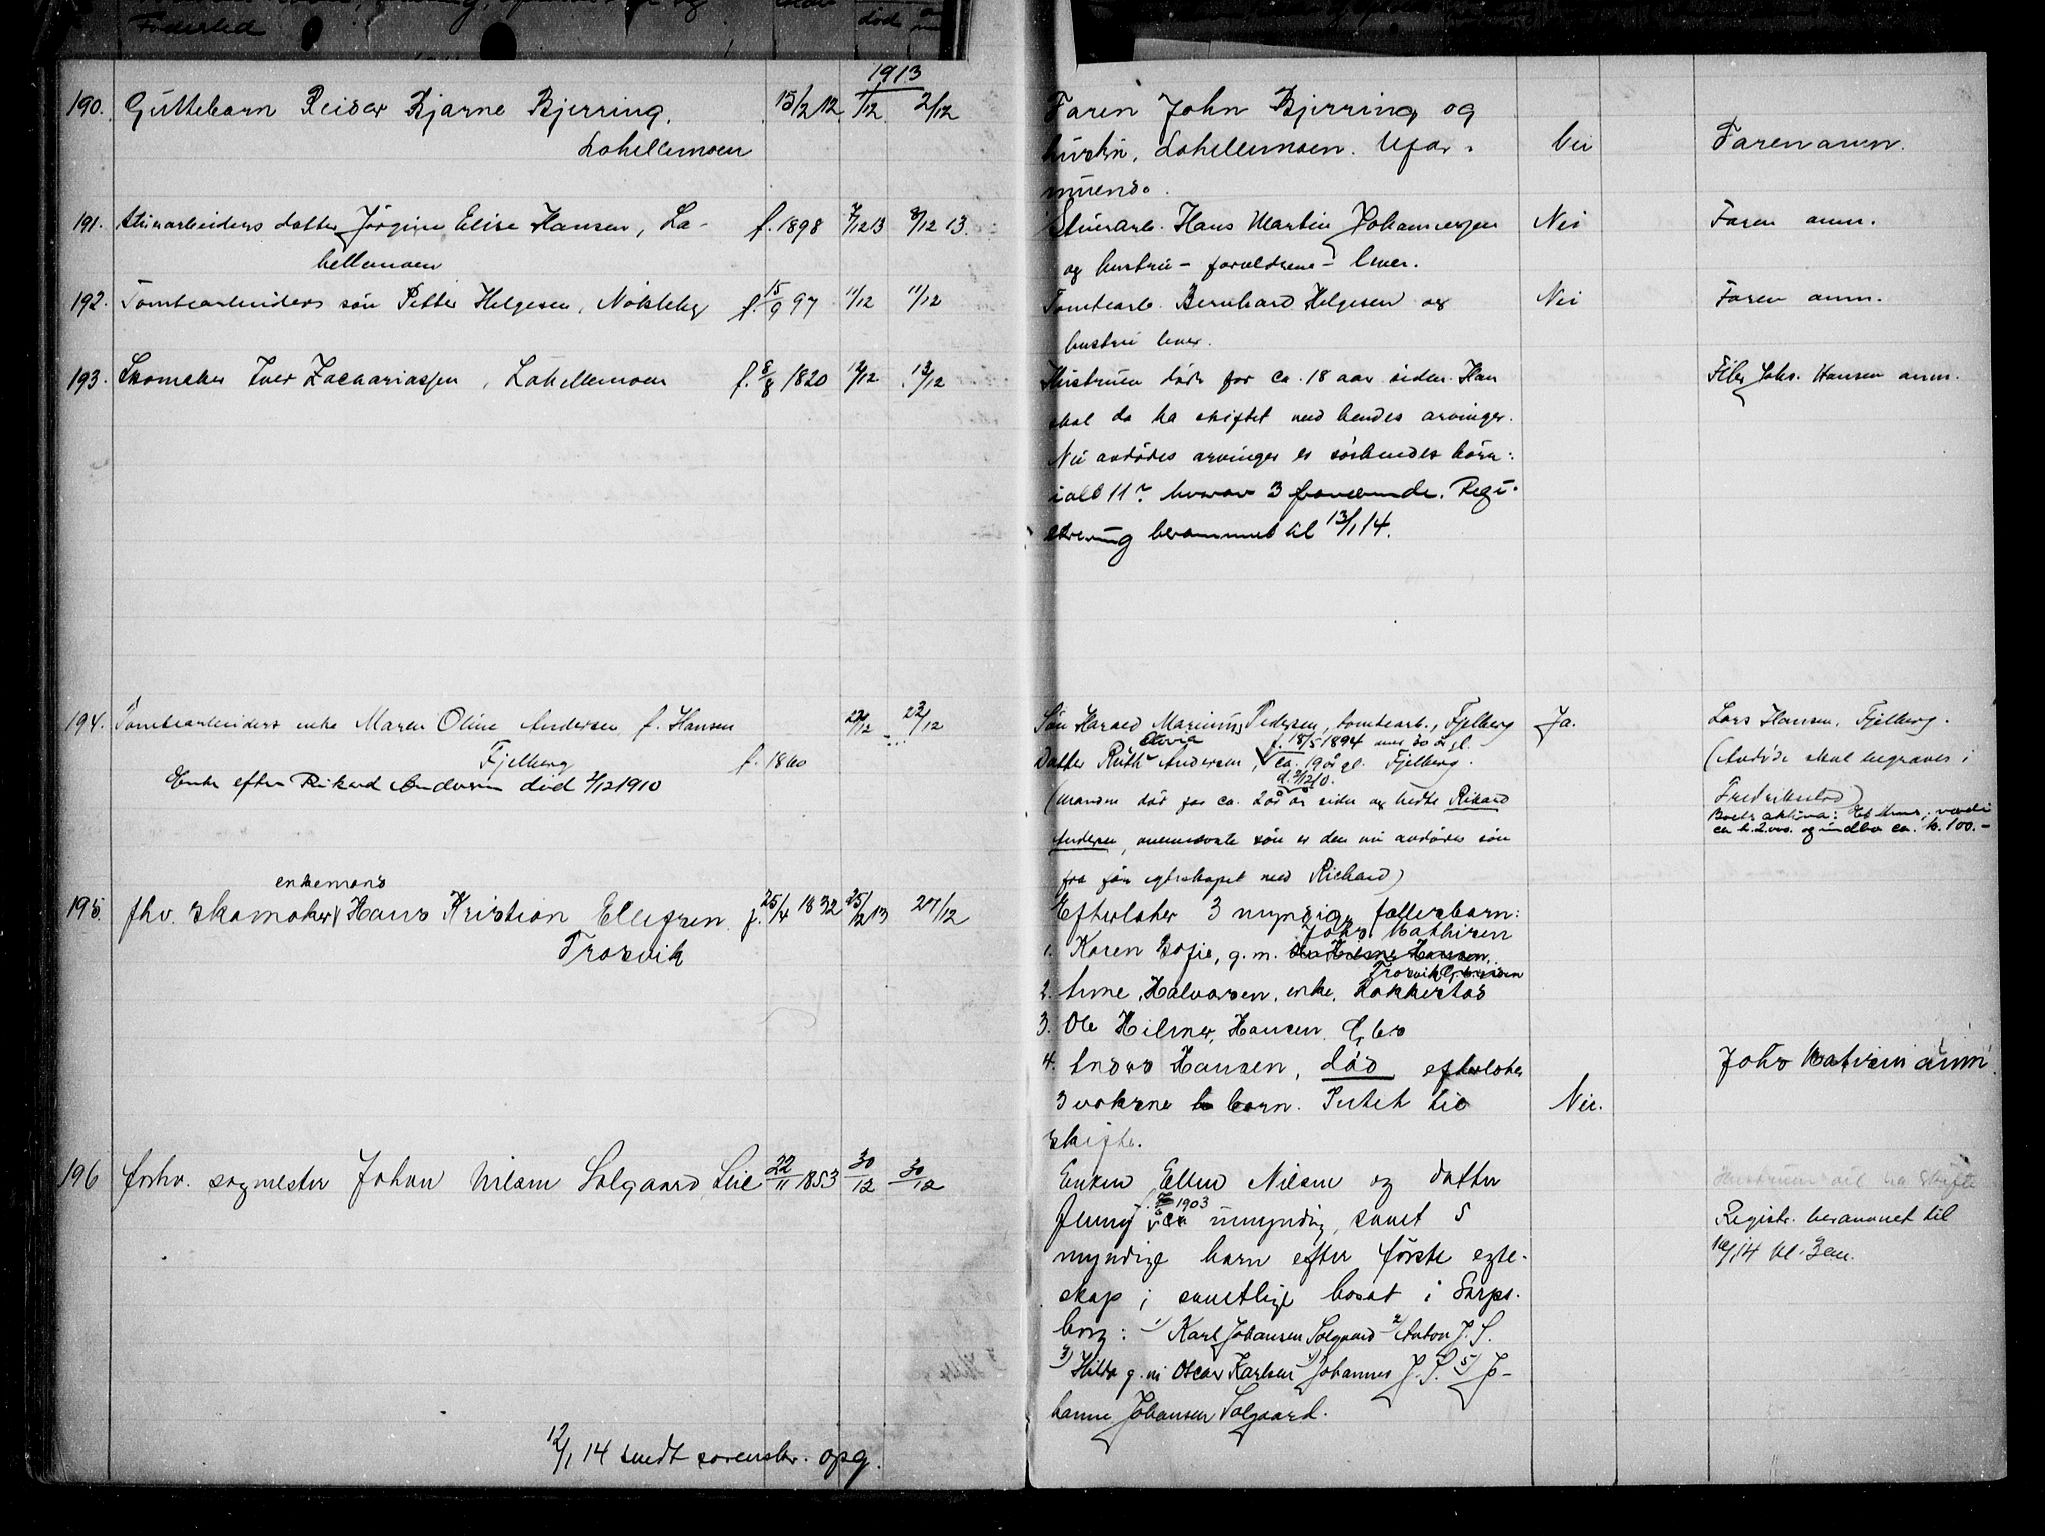 Fødested
død
1913
190. Guttebarn Reidar Bjarne Bjerring, 15/2 12 1/12 2/12
Lahellemoen
Faren John Bjerring og
hustru, Lahellemoen. Ufor-
muende.
Nei
Faren anm.
191. datter Jørgine Elise Hansen, La- f. 1898 7/12 13 8/12 13.
hellemoen
Hans Martin Johannessen
og hustru – forældrene – lever.
Nei
Faren anm.
192. Tomtearbeiders søn Petter Helgesen, Nøkleby f. 15/9 97 11/12 11/12
Tomtearb. Bernhard Helgesen og
hustru lever.
Nei
Faren anm.
193. Skomaker Iver Zachariassen, Lahellemoen f. 8/8 1820 12/12 13/12
Hustruen døde for ca. 18 aar siden. Han
skal da ha skiftet med hendes arvinger.
Nu avdødes arvinger er søskendes børn:
ialt 11 hvorav 3 fraværende. Regi-
strering berammet til 13/1 14.
Johs. Hansen anm.
194. Tomtearbeiders enke Maren Oline Andersen f. Hansen 22/12 23/12
Fjelberg f. 1860
Enke efter Rikard Andersen død 2/12 1910
Søn Harald Marinius Pedersen, tomtearb., Fjelberg
f. 18/5 1894
Datter Ruth Andersen, ca. 19 år gl. Fjelberg.
d. 2/12 10.
(Manden død for ca. 2 år siden og hedte Rikard
Andersen, ovennævnte søn er den nu avdødes søn
fra før egteskapet med Richard)
Ja.
Lars Hansen, Fjelberg.
(Avdøde skal begraves i
Fredrikstad)
Boets aktiva: Et hus, værdi
ca k. 2000. og indbo ca. k. 100.–
enkemand
195. fhv. skomaker Hans Kristian Ellefsen f. 25/4 1832 25/12 13 27/12
Trosvik
Efterlater 3 myndige fællesbarn:
Johs Mathisen
1. Karen Sofie, g. m. Hansen,
Trosvik
2. Anne Halvorsen, enke, Rakkestad
3. Ole Hilmer Hansen, Gbro
4. Anders Hansen, død efterlater
3 voksne barn. Intet til
skifte.
Nei.
Johs Mathisen anm.
196 forhv. sagmester Johan Nilsen Solgaard, Leie 22/11 1853 30/12 30/12
Enken Ellen Nilsen og datter
1903
Jenny umyndig, samt 5
myndige barn efter første egte-
skap; samtlige bosat i Sarps-
borg: 1) Karl Johansen Solgaard 2) Anton J. S.
3) Hilda g. m Oscar Karlsen 4) Johannes J. S. 5) Jo-
hanne Johansen Solgaard.
Hustruen vil ha skifte
Registr. berammet til
16/1 14 kl. 3 em.
12/1 14 sendt sorenskr. opg.